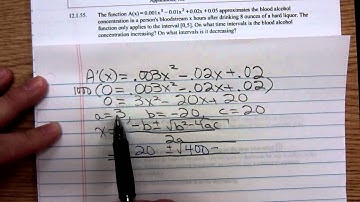 12.1.55. The function A(x) = 0.001x³ - 0.01x² + 0.02x + 0.05 approximates the blood alcohol
concentration in a person's bloodstream x hours after drinking 8 ounces of a hard liquor. The
function only applies to the interval [0,5]. On what time intervals is the blood alcohol
concentration increasing? On what intervals is it decreasing?
A'(x) = .003x² - .02x + .02
1000 (0 = .003x² - .02x + .02)
0 = 3x² - 20x + 20
a = 3, b = -20, c = 20
x = -b ± √b² - 4ac
2a
20 ± √400 -